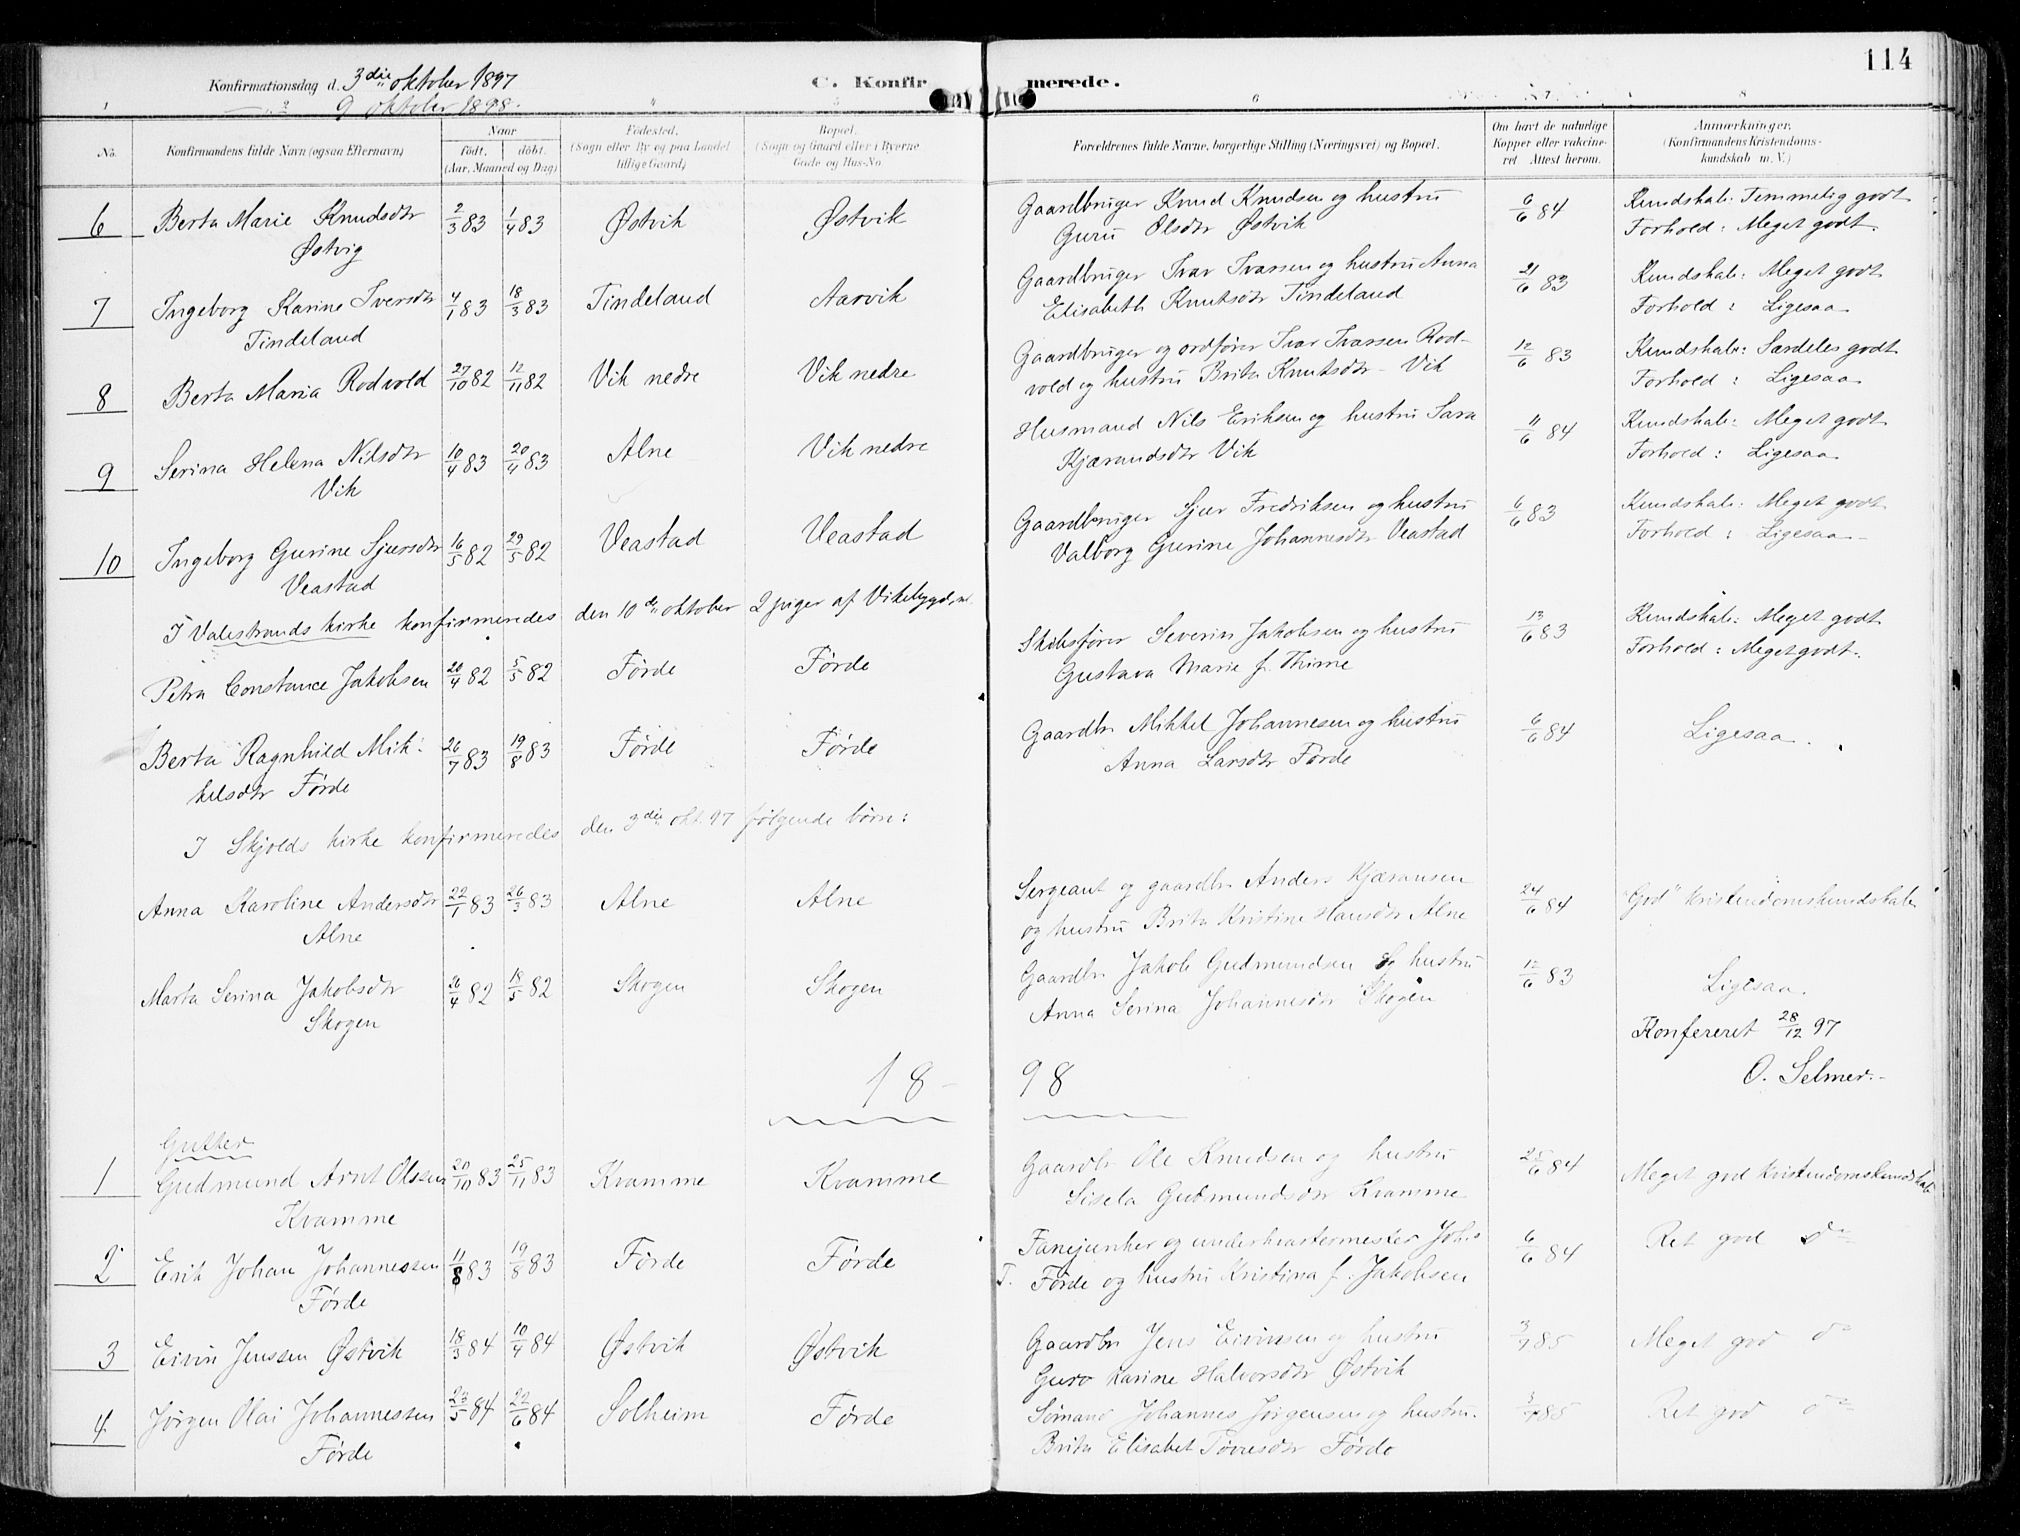 114
Konfirmationsdag d. 3die oktober 1897
C. Konfirmerede.
9 oktober 1898.
No. Konfirmandens fulde Navn (ogsaa Efternavn) Naar født. døbt. (Aar, Maaned og Dag) Fødested. (Sogn eller By og paa Landet tillige Gaard) Bopæl. (Sogn og Gaard eller i Byerne Gade og Hus-No. Forældrenes fulde Navne, borgerlige Stilling (Næringsvei) og Bopæl. Om havt de naturlige Kopper eller vakcineret Attest herom. Anmærkninger. (Konfirmandens Kristendomskundskab m. V.)
6 Berta Marie Knudsdtr 2/3 83 1/4 83 Østvik Østvik Gaardbruger Knud Knudsen og hustru 6/6 84 Kundskab: Temmelig godt
Østvig Guru Olsdtr Østvik Forhold: Meget godt.
7 Ingeborg Karine Iversdtr 4/1 83 18/3 83 Tindeland Aarvik Gaardbruger Ivar Ivarsen og hustru Anna 21/6 83 Kundskab: Meget godt
Tindeland Elisabeth Knutsdtr Tindeland Forhold: Ligesaa
8 Berta Maria Rodvold 27/10 82 12/11 82 Vik nedre Vik nedre Gaardbruger og ordfører Ivar Ivarsen Rod- 12/6 83 Kundskab: Særdeles godt
vold og hustru Brita Knutsdtr - Vik Forhold: Ligesaa
9 Serina Helena Nilsdtr 10/4 83 20/4 83 Alne Vik nedre Husmand Nils Eriksen og hustru Sara 11/6 84 Kundskab: Meget godt
Vik Kjærandsdtr Vik Forhold: Ligesaa
10 Ingeborg Gurine Sjursdtr 16/5 82 29/5 82 Veastad Veastad Gaardbruger Sjur Fredriksen og hustru 6/6 83 Kundskab: Meget godt
Veastad Valborg Gurine Johannesdtr Veastad Forhold: Ligesaa
I Valestrands kirke konfirmeredes den 10de oktober 2 piger af Vikebygd,
Petra Constance Jakobsen 20/4 82 5/5 82 Førde Førde Skibsfører Severin Jakobsen og hustru 13/6 83 Kundskab: Meget godt
Gustava Marie f. Thime Forhold: Meget godt.
Berta Ragnhild Mik- 26/7 83 19/8 83 Førde Førde Gaardbr Mikkel Johannesen og hustru 6/6 84 Ligesaa.
kelsdtr Førde Anna Larsdtr Førde
I Skjolds kirke konfirmeredes den 3die okt. 97 følgende børn:
Anna Karoline Andersdtr 22/1 83 26/3 83 Alne Alne Sergeant og gaardbr Anders Kjæransen 24/6 84 "God" kristendomskundskab
Alne og hustru Brita Kristine Hansdtr Alne
Marta Serina Jakobsdtr 26/4 82 18/5 82 Skogen Skogen Gaardbr Jakob Gudmundsen og hustru 12/6 83 Ligesaa.
Skogen Anna Serina Johannesdtr Skogen
Konfereret 28/12 97
O. Selmer.
18 98
Gutter
1 Gudmund Arnt Olssen 20/10 83 25/11 83 Kvamme Kvamme Gaardbr Ole Knudsen og hustru 25/6 84 Meget god kristendomskundskab
Kvamme Sisela Gudmundsdtr Kvamme
2 Erik Johan Johannessen 11/8 83 19/8 83 Førde Førde Fanejunker og underkvartermester Johs 6/6 84 Ret god do
Førde T. Førde og hustru Kristina f. Jakobsen
3 Eivin Jenssen Østvik 18/3 84 10/4 84 Østvik Østvik Gaardbr Jens Eivinsen og hustru 3/7 85 Meget god do
Guro Karine Halvorsdtr Østvik
4 Jørgen Olai Johannessen 23/5 84 22/6 84 Solheim Førde Sømand Johannes Jørgensen og hustru 3/7 85 Ret god do
Førde Brita Elisabet Tøresdtr Førde